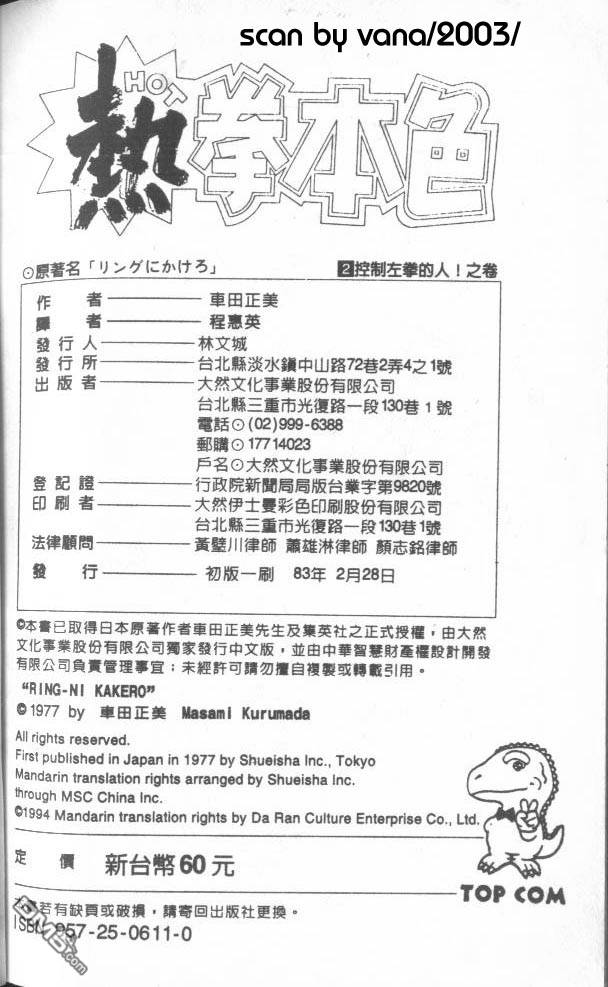 scan by vana/2003/
HOT
熱拳本色
⊙原著名「リングにかけろ」
2控制左拳的人！之卷
作者——車田正美
譯者——程惠英
發行人——林文城
發行所——台北縣淡水鎮中山路72巷2弄4之1號
出版者——大然文化事業股份有限公司
台北縣三重市光復路一段130巷1號
電話⊙(02)999-6388
郵購⊙17714023
戶名⊙大然文化事業股份有限公司
登記證——行政院新聞局局版台業字第9820號
印刷者——大然伊士曼彩色印刷股份有限公司
台北縣三重市光復路一段130巷1號
法律顧問——黃璧川律師 蕭雄淋律師 顏志銘律師
發行——初版一刷 83年 2月28日
©本書已取得日本原著作者車田正美先生及集英社之正式授權，由大然
文化事業股份有限公司獨家發行中文版，並由中華智慧財產權設計開發
有限公司負責管理事宜；未經許可請勿擅自複製或轉載引用。
“RING-NI KAKERO”
©1977 by 車田正美 Masami Kurumada
All rights reserved.
First published in Japan in 1977 by Shueisha Inc., Tokyo
Mandarin translation rights arranged by Shueisha Inc.
through MSC China Inc.
©1994 Mandarin translation rights by Da Ran Culture Enterprise Co., Ltd.
定價 新台幣60元
TOP COM
若有缺頁或破損，請寄回出版社更換。
ISBN 957-25-0611-0
.com